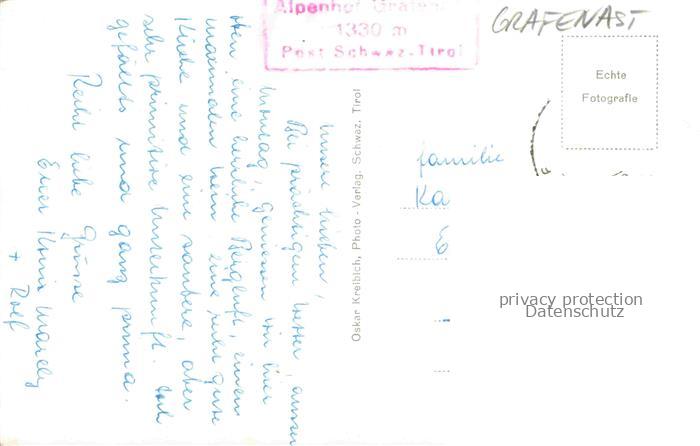 Alpenhof Grafen
1330 m
Post Schwaz-Tirol
GRAFENAST
Echte
Fotografie
Unsere Lieben,
Bei prächtigem Wetter, ausser
Montag, geniessen wir hier
oben eine herrliche Bergluft, einen
manchmal eine recht gute
Küche und eine saubere, aber
sehr primitive Unterkunft.
gefällts uns ganz prima.
Recht liebe Grüsse
Euer
+ Rolf
Oskar Kreibich, Photo-Verlag, Schwaz, Tirol
familie
Ka
E
privacy protection
Datenschutz